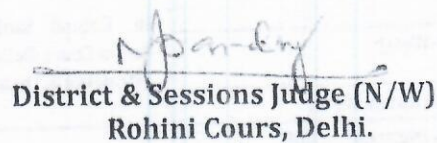 District & Sessions Judge (N/W)
Rohini Cours, Delhi.